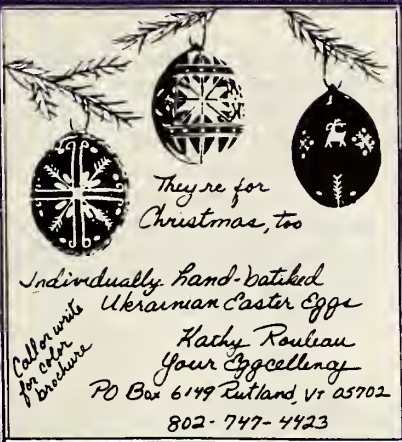 They're for
Christmas, too
Individually hand-batiked
Ukrainian Easter Eggs
Call or write
for color
brochure
Kathy Rouleau
Your Eggcellency
PO Box 6149 Rutland, VT 05702
802-747-4423